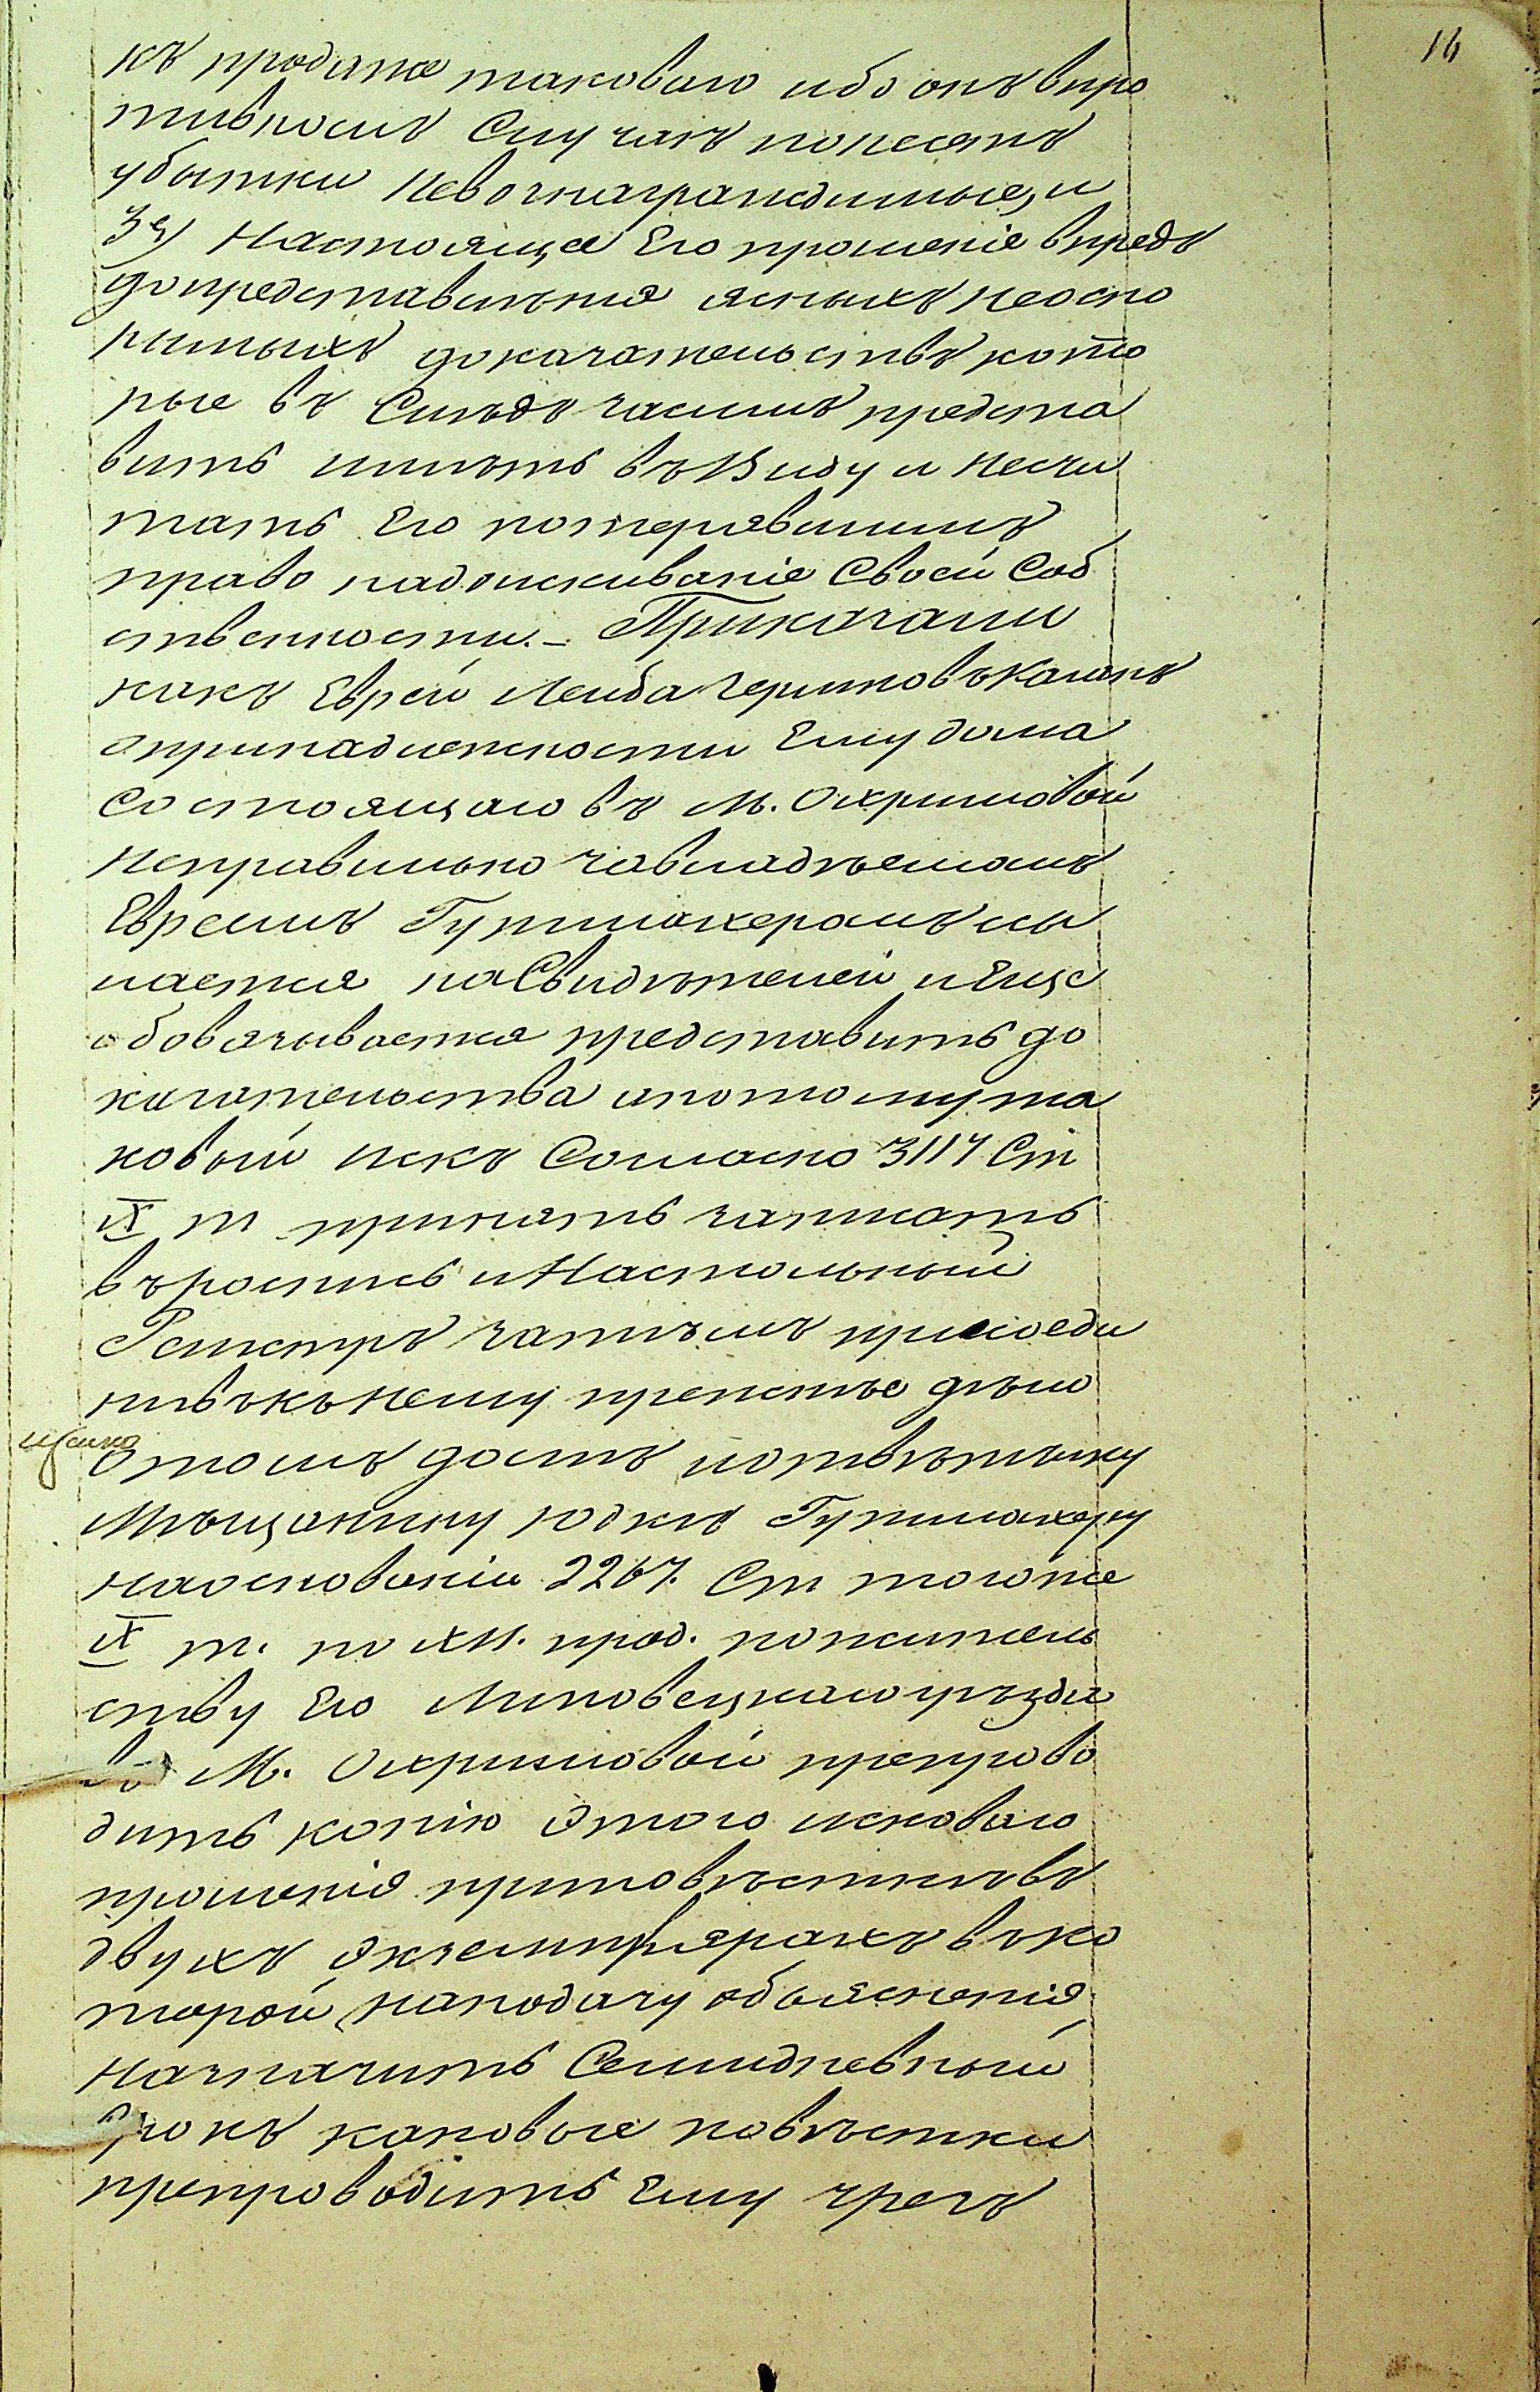 16
къ продаже таковаго ибо онъ впро
тивномъ Случаѣ понесетъ
убытки Невознаградимые, и
3е) Настояще Его прошеніе впредъ
допредставленія ясныхъ неоспо
римыхъ доказательствъ кото
рые въ Слѣдъ засимъ предста
вить имѣть въ Виду и несчи
тать Его потерявшимъ
право надоискиваніе Своей Соб
ственности. – Приказали
какъ Еврей Лейба Гершковъ
опринадлежности Ему дома
состоящаго въ М. Охримовой
Неправильно завладѣемомъ
Евреемъ Гутмахеромъ ссы
лается на Свидѣтелей и Еще
обовязывается представить до
казательства апотому та
ковый искъ Согласно 3117 Ст
IX т принять записать
въ роспись и Настольный
Реистръ затѣмъ присоеди
нивъ къ Нему прежнее дѣло
отомъ дать потвѣтчику
Мѣщанину Юдкѣ Гутмахеру
наоснованіи 2267. Ст тогоже
IX т. по XII. прод. пожитель
ству Его Липовецкаго уѣзда
въ М. Охримовой препрово
дить копію этого исковаго
прошенія приповѣсткѣ въ
двухъ экземплярахъ въ ко
торой наподачу объясненія
Назначить Семидневный
срокъ каковые повѣстки
препроводить Ему чрезъ